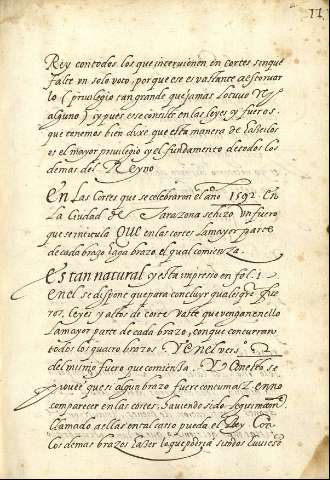 11
Rey con todos los que intervienen en cortes sin que
falte vn solo voto, porque ese es vastante a estoruar
lo (privilegio tan grande que jamas lo tuuo
alguno) y pues este consiste en las leyes y fueros
que tenemos bien dixe que esta manera de
es el mayor privilegio y el fundamento de todos los
demas del Reyno
En Las Cortes que se celebraron el año 1592 en
La Ciudad de Tarazona se hizo vn fuero
que se intitula Que en las cortes La mayor parte
de cada brazo haga brazo, el qual comienza.
Es tan natural y esta impresso en fol. 1
en el se dispone que para concluyr qualesqre fue
ros, leyes y actos de corte vaste que vengan en ello
La mayor parte de cada brazo, con que concurran
todos los quatro brazos. Y en el vers. 2
del mismo fuero que comienza. Y con esto se
prouee que si algun brazo fuere contumaz en no
comparecer en las cortes, haviendo sido
llamado a ellas en tal caso pueda el Rey con
los demas brazos hazer lo que podria si todos